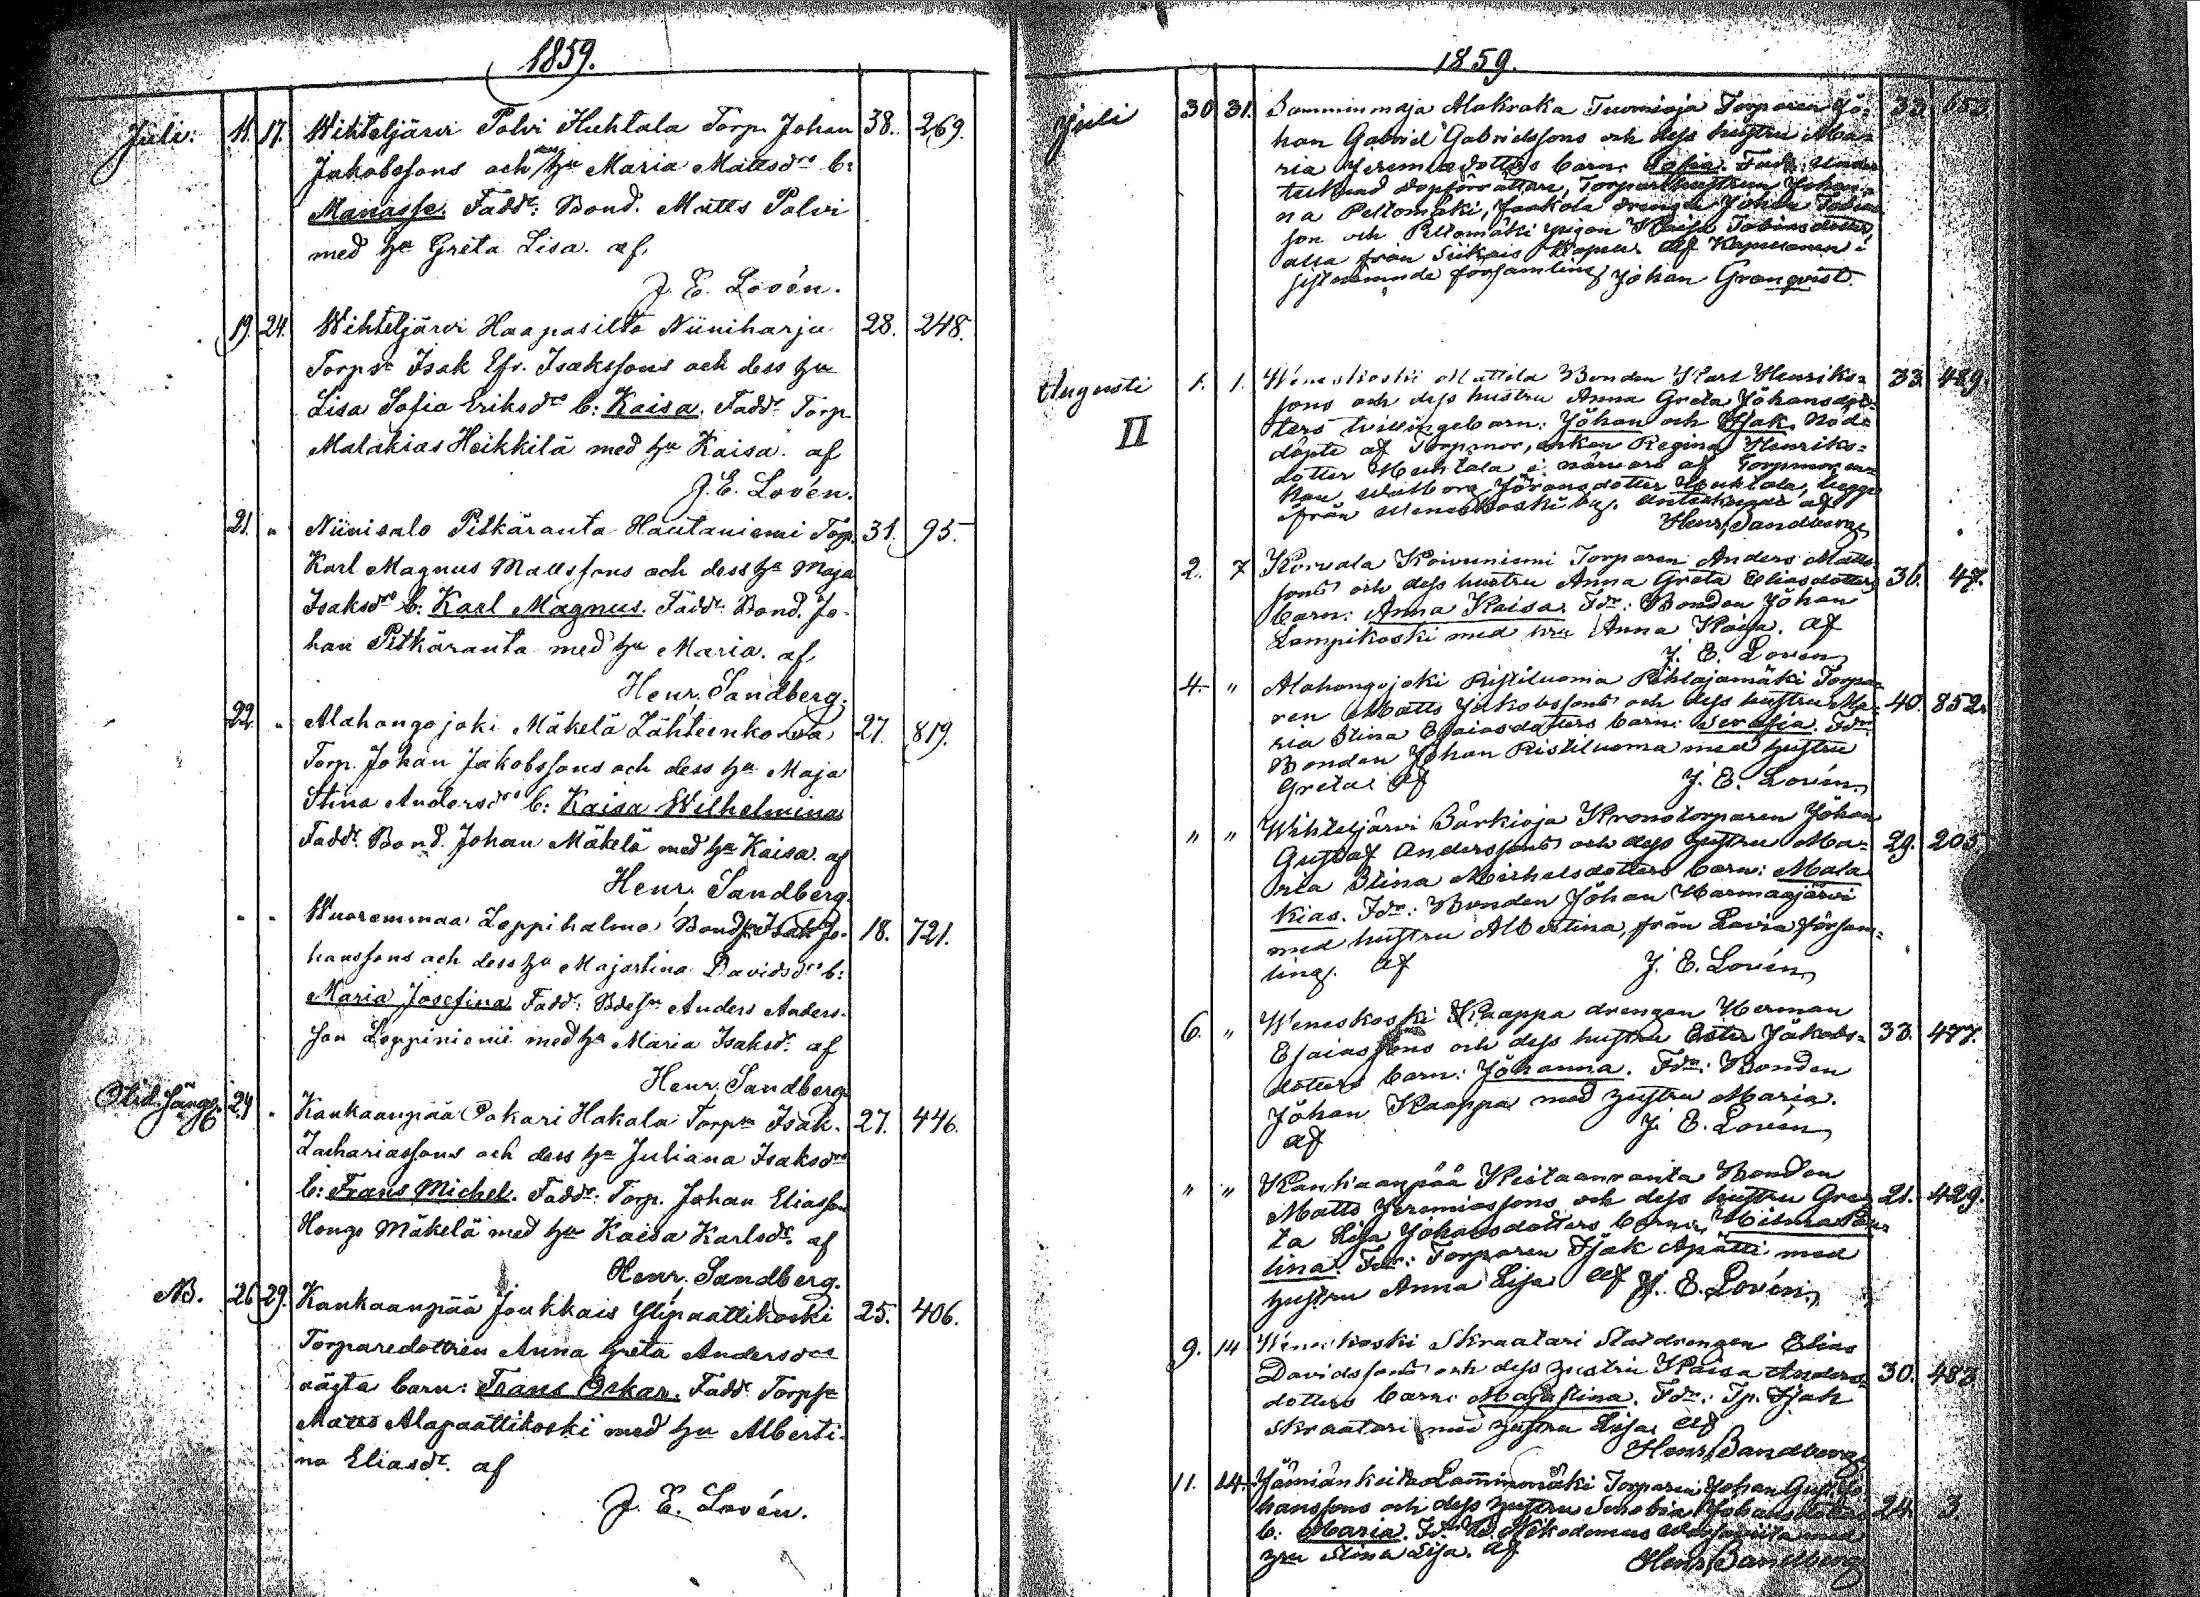 1859.
Juli. 11. 17. Wihteljärvi Polvi Huhtala Torp. Johan 38. 269.
Jakobssons och dess hu Maria Mattsdrs b:
Manasse. Fadd: Bond. Matts Polvi
med hu Greta Lisa. af
J. E. Lovén.
19. 24. Wihteljärvi Haapasilta Niiniharju 28. 248.
Torpr Isak Efr. Isakssons och dess hu
Lisa Sofia Eriksdrs b: Kaisa. Faddr Torp.
Malakias Heikkilä med hu Kaisa. af
J. E. Lovén.
21. " Niinisalo Pitkäranta Hautaniemi Torp. 31. 95.
Karl Magnus Mattssons och dess hu Maja
Isaksdrs b: Karl Magnus. Faddr: Bond. Jo-
han Pitkäranta med hu Maria. af
Henr. Sandberg.
22. " Alahongojoki Mäkelä Lähteenkorva 27. 819.
Torp. Johan Jakobssons och dess hu Maja
Stina Andersdrs b: Kaisa Wilhelmina
Faddr. Bond. Johan Mäkelä med hu Kaisa. af
Henr. Sandberg.
" " Wuorenmaa Leppihalme Bondes. Isak Jo- 18. 721.
hanssons och dess hu Majastina Davidsdrs b:
Maria Josefina. Faddr: Anders Anders-
son Leppiniemi med hu Maria Isaksdr. af
Henr. Sandberg
24. " Kankaanpää Pakari Hakala Torpn Isak 27. 446.
Zachariassons och dess hu Juliana Isaksdrs
b: Frans Michel. Faddr: Torp. Johan Eliasson
Hongo Mäkelä med hu Kaisa Karlsdr. af
Henr. Sandberg.
NB. 26 29. Kankaanpää Joukkais Ylipaattikoski 25. 406.
Torparedottren Anna Greta Andersdrs
oägta barn: Frans Oskar. Faddr Torpn
Matts Alapaattikoski med hu Alberti-
na Eliasdr. af
J. E. Lovén.
1859.
Juli 30 31. Samminmaja Alakraka Tuomioja Torparen Jo- 33. 653.
han Gabriel Gabrielssons och dess hustru Ma-
ria Jeremiedotters barn: Sofia. Fadr: Under
tecknad dopförrättare, Torparehustrun Johan-
na Peltomäki, Jaakola drengen Johan Tobias
son och Peltomäki pigan Kaisa Tobiasdotter,
alla från Siikais Kapell. af Kapellanen i
sistnämnde församling Johan Granqvist.
Augusti 1. 1. Weneskoski Mattila Bonden Karl Henriks- 33. 489.
II
sons och dess hustru Anna Greta Johansdot-
ters tvillingebarn: Johan och Isak. Nöd-
döpte af Torpmor, enkan Regina Henriks-
dotter Huhtala i närvaro af Torpmor, en-
kan Walborg Göransdotter Huhtala, begge
från Weneskoski by. Antecknadt af
Henr. Sandberg
2. 7 Korvala Koivuniemi Torparen Anders Matts 36. 47.
sons och dess hustru Anna Greta Eliasdotters
barn: Anna Kaisa. Fdr: Bonden Johan
Lampikoski med hru Anna Kaisa. af
J. E. Lovén
4. " Alahongojoki Ristiluoma Pihlajamäki Torpa- 40. 852.
ren Matts Jakobssons och dess hustru Ma-
ria Stina Esaiasdotters barn: Serafia. Fdr.
Bonden Johan Ristiluoma med hustru
Greta. af J. E. Lovén
" " Wihteljärvi Särkioja Kronotorparen Johan 29. 205.
Gustaf Anderssons och dess hustru Ma-
ria Stina Michelsdotters barn: Mala
kias. Fdr: Bonden Johan Harmaajärvi
med hustru Albertina, från Lavia försam-
ling. af J. E. Lovén
6. " Weneskoski Kaappa drengen Herman 33. 477.
Esaiassons och dess hustru Ester Jakobs-
dotters barn: Johanna. Fdr: Bonden
Johan Kaappa med hustru Maria.
af J. E. Lovén
" " Kankaanpää Keitaanranta Bonden 21. 429.
Matts Jeremiassons och dess hustru Gre-
ta Lisa Johansdotters barn: Hilma Pau-
lina. Fdr: Torparen Isak Apätti med
hustru Anna Lisa af J. E. Lovén
9. 14 Weneskoski Skraatari Statdrengen Elias 30. 483
Davidssons och dess hustru Kaisa Anders-
dotters barn: Majastina. Fdr: Tp. Isak
Skraatari med hustru Lisa. af
Henr. Sandberg
11. 14. Jämiänkeidas Lamminmäki Torparen Johan Gust. Jo- 24. 3.
hanssons och dess hustru Senobia Johansdotters
b: Maria. Fdr. Nikodemus med
hru Stina Lisa. af Henr. Sandberg